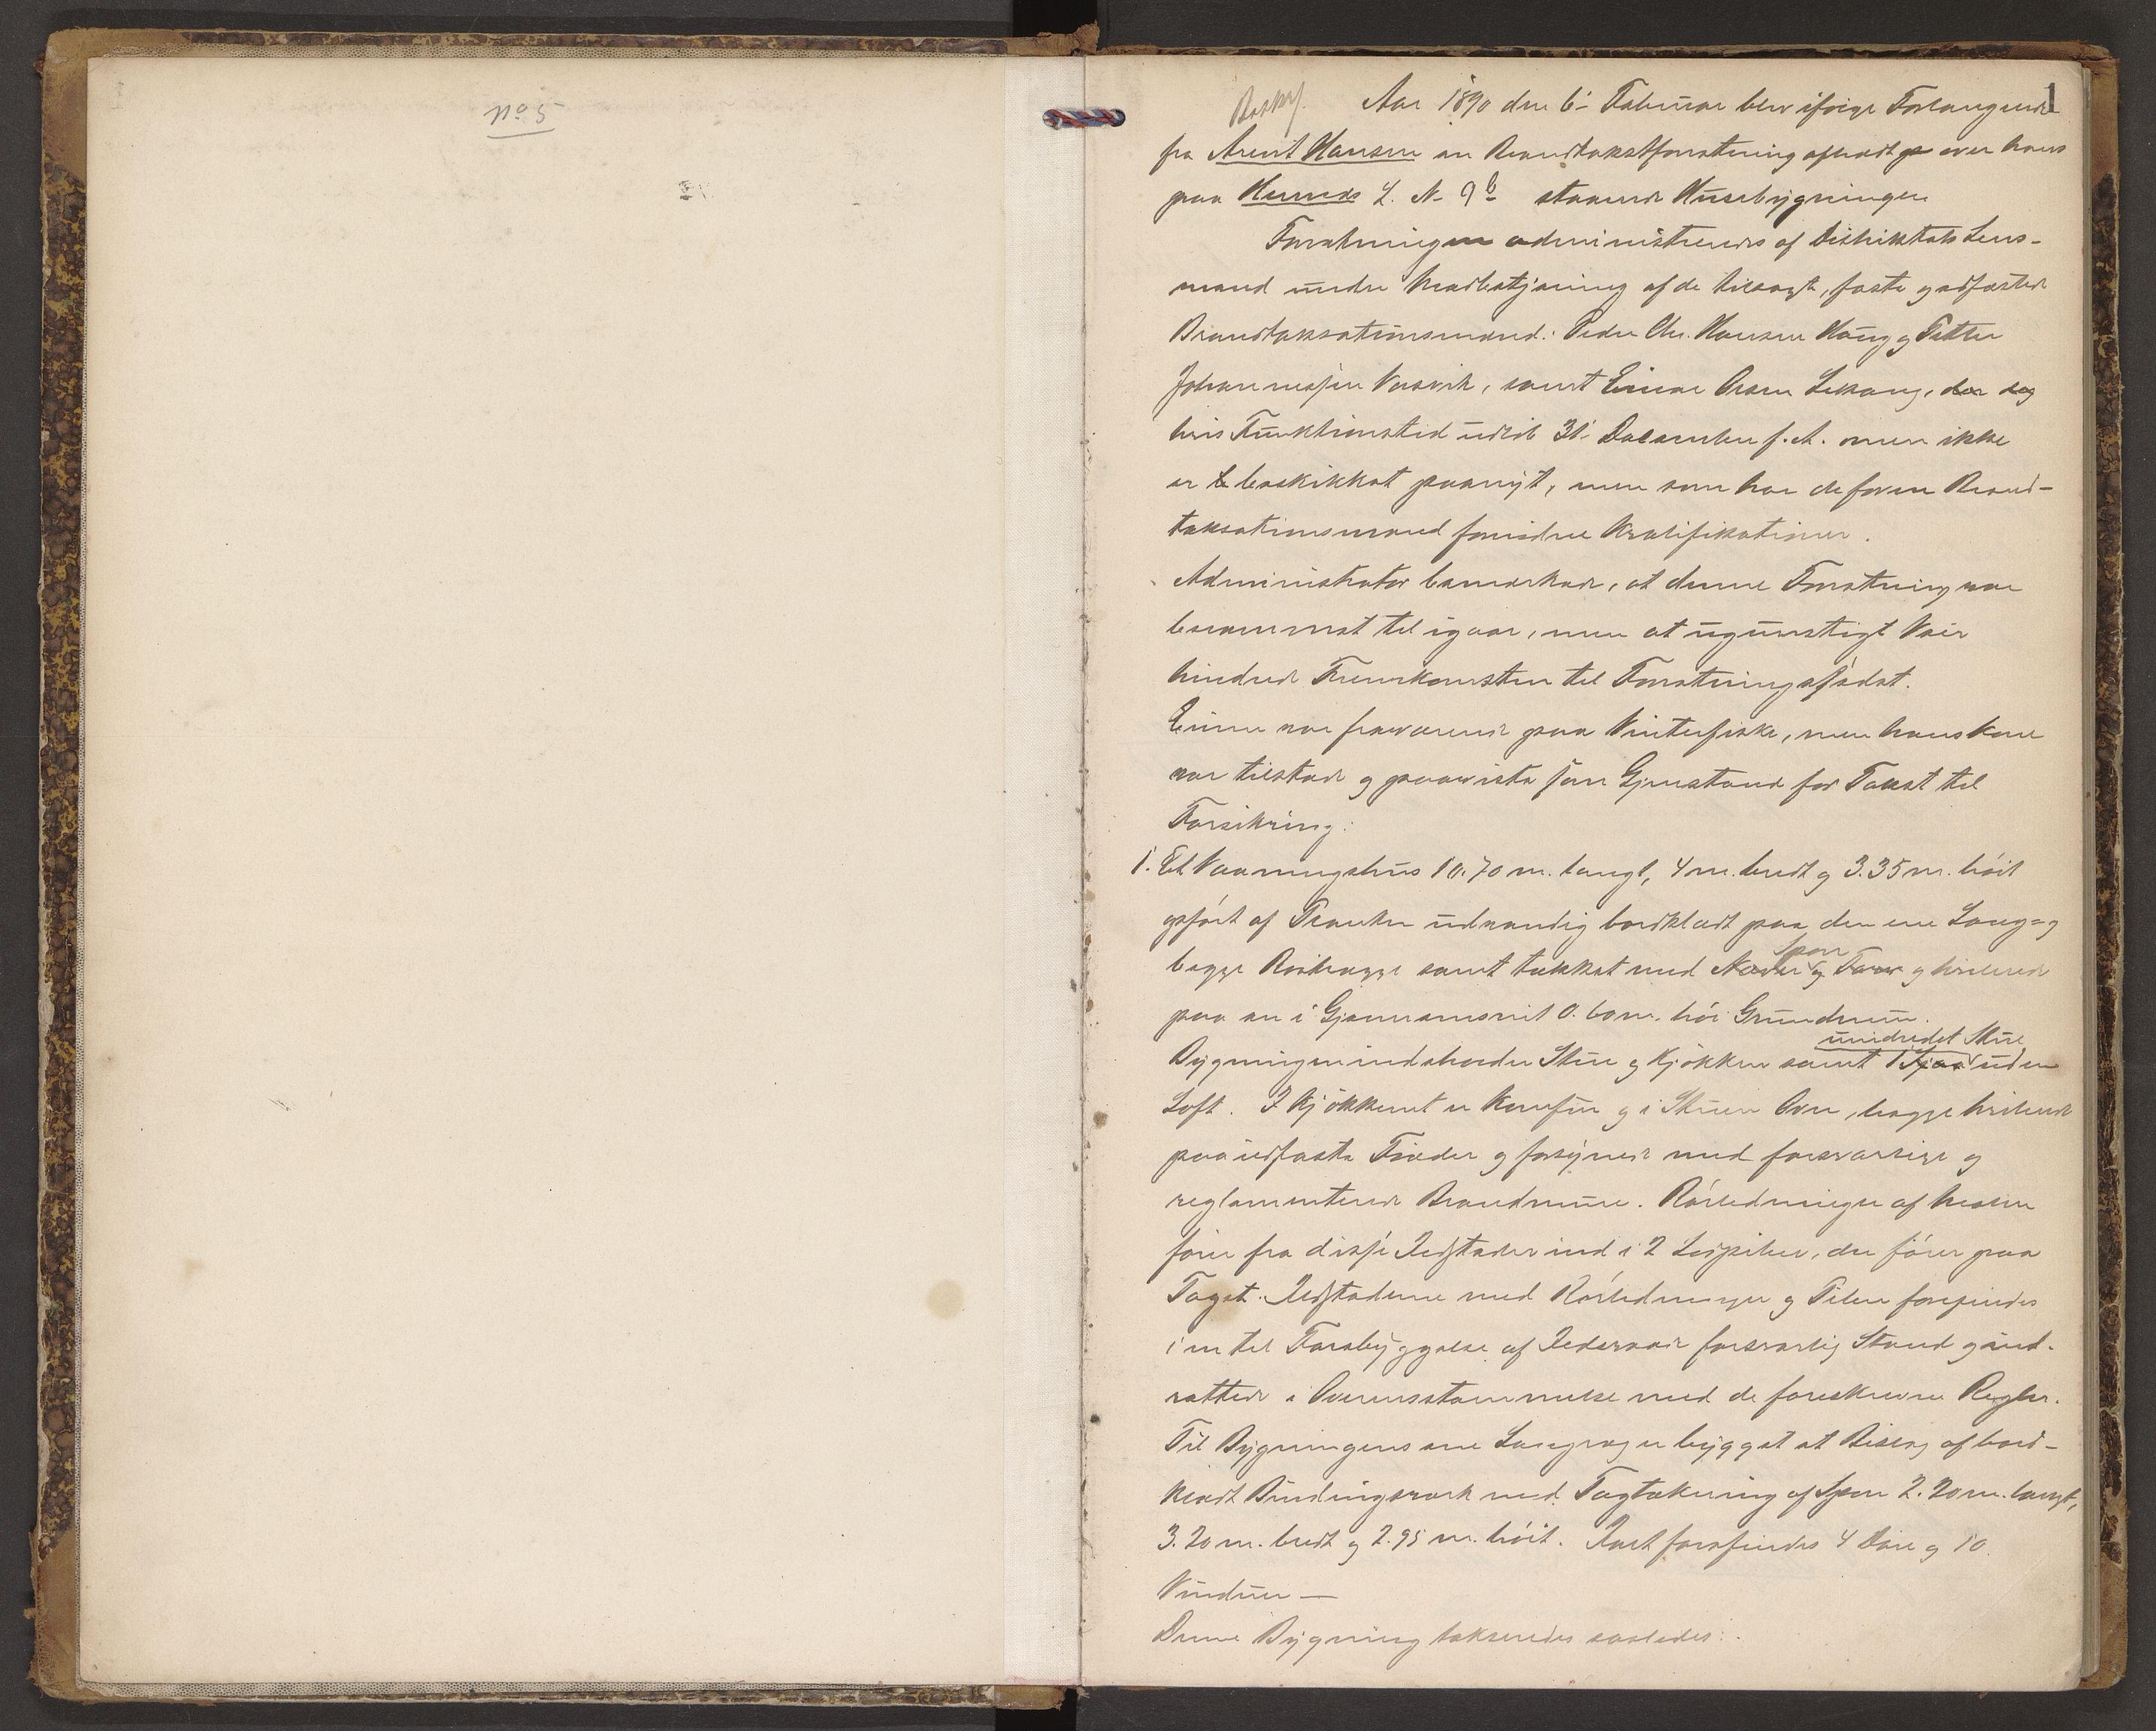 No 5
1
Beskr. Aar 1890 den 6- Februar blev ifølge Forlangende
fra Arent Hansen en Brandtakstforretning afholdt p over hans
paa Hunds L. N- 9b staaende Husebygninger
Forretningen administreredes af Distriktets Lens-
mand under Medbetjening af de tilsagte, faste edfæstede
Brandtaksationsmænd: Peder Chr. Hansen Haug og Petter
Johannessen Vasvik, samt Einar Olsen Lekang, der dog
hvis Funktionstid udløb 31- December f. A. men ikke
er b beskikket paanyt, men som har de for en Brand-
taksationsmand fornødne Kvalifikationer.
Administrator bemærkede, at denne Forretning var
berammet til igaar, men at ugunstigt Veir
hindred Fremkomsten til Forretningsstedet.
Eieren var fraværende paa Vinterfiske, men hans Kone
var tilstede og paaviste som Gjenstand for Takst til
Forsikring:
1. Et Vaaningshus 10.70 m. langt, 4 m. bredt og 3.35 m. høit
opført af Tømmer udvendig bordklædt paa den ene Lang- og
begge Røstvægge samt tækket med Næver og Torv Spon og hvilende
paa en i Gjennemsnit 0.60 m. høi Grundmur.
Bygningen indeholder Stue og Kjøkken samt uindredet Stue uden
Loft. I Kjøkkenet er Komfur og i Stuen Ovn, begge hvilende
paa ildfaste Fødder og forsynede med forsvarlige og
reglementerede Brandmure. Rørledninger af Metal
fører fra disse Ildsteder ind i 2 Piber, der fører paa
Taget. Ildstederne med Rørledninger og Piber forefindes
i en til Forebyggelse af Ildsvaade forsvarlig Stand og ind-
rettede i Overensstemmelse med de foreskrevne Regler.
Til Bygningens ene Langvæg er bygget et Bislag af bord-
klædt Bindingsværk med Tagtækning af Spon 2.20 m. langt,
3.20 m. bredt og 2.95 m. høit. I Huset forefindes 4 Døre og 10
Vinduer —
Denne Bygning takseredes saaledes: